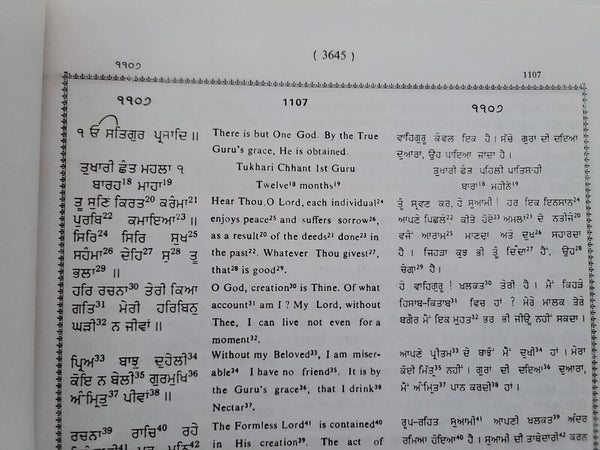 ( 3645 )
੧੧੦੭
1107
੧੧੦੭
੧ ਓ ਸਤਿਗੁਰ ਪ੍ਰਸਾਦਿ ॥
ਤੁਖਾਰੀ ਛੰਤ ਮਹਲਾ ੧
ਬਾਰਹ18 ਮਾਹਾ19
ਤੂ ਸੁਣਿ ਕਿਰਤ20 ਕਰੰਮਾ21
ਪੁਰਬਿ22 ਕਮਾਇਆ23 ॥
ਸਿਰਿ24 ਸਿਰਿ ਸੁਖ25
ਸਹੰਮਾ26 ਦੇਹਿ27 ਸੁ28 ਤੂ
ਭਲਾ29 ॥
ਹਰਿ ਰਚਨਾ30 ਤੇਰੀ ਕਿਆ
ਗਤਿ31 ਮੇਰੀ ਹਰਿਬਿਨੁ
ਘੜੀ32 ਨ ਜੀਵਾਂ ॥
ਪ੍ਰਿਅ33 ਬਾਝੁ ਦੁਹੇਲੀ34
ਕੋਇ ਨ ਬੇਲੀ35 ਗੁਰਮੁਖਿ36
ਅੰਮ੍ਰਿਤੁ37 ਪੀਵਾਂ38 ॥
ਰਚਨਾ39 ਰਾਚਿ40 ਰਹੇ
1107
There is but One God. By the True
Guru's grace, He is obtained.
Tukhari Chhant 1st Guru
Twelve18 months19
Hear Thou,O Lord, each individual24
enjoys peace25 and suffers sorrow26,
as a result20 of the deeds21 done23 in
the past22. Whatever Thou givest27,
that28 is good29.
O God, creation30 is Thine. Of what
account31 am I ? My Lord, without
Thee, I can live not even for a
moment32.
Without my Beloved33, I am miser-
able34. I have no friend35. It is by
the Guru's grace36, that I drink38
Nectar37.
The Formless Lord41 is contained40
in His creation39. The act of
੧੧੦੭
ਵਾਹਿਗੁਰੂ ਕੇਵਲ ਇਕ ਹੈ । ਸੱਚੇ ਗੁਰਾਂ ਦੀ ਦਇਆ
ਦੁਆਰਾ, ਉਹ ਪਾਇਆ ਜਾਂਦਾ ਹੈ ।
ਤੁਖਾਰੀ ਛੰਤ ਪਹਿਲੀ ਪਾਤਿਸ਼ਾਹੀ
ਬਾਰਾਂ18 ਮਹੀਨੇ19
ਤੂੰ ਸ੍ਰਵਣ ਕਰ, ਹੇ ਸੁਆਮੀ ! ਹਰ ਇਕ ਇਨਸਾਨ24
ਆਪਣੇ ਪਿਛਲੇ22 ਕੀਤੇ ਹੋਏ23 ਅਮਲਾਂ21 ਦੇ ਨਤੀਜੇ20
ਵਜੋਂ ਆਰਾਮ25 ਮਾਣਦਾ ਅਤੇ ਦੁਖ26 ਸਹਾਰਦਾ
ਹੈ । ਜਿਹੜਾ ਕੁਛ ਭੀ ਤੂੰ ਦਿੰਦਾ27 ਹੈਂ, ਉਹ28
ਚੰਗਾ29 ਹੈ ।
ਹੇ ਵਾਹਿਗੁਰੂ ! ਖਲਕਤ30 ਤੇਰੀ ਹੈ । ਮੈਂ ਕਿਹੜੇ
ਹਿਸਾਬ-ਕਿਤਾਬ31 ਵਿਚ ਹਾਂ ? ਮੇਰੇ ਮਾਲਕ ਤੇਰੇ
ਬਗੈਰ ਮੈਂ ਇਕ ਮੁਹਤ32 ਭਰ ਭੀ ਜੀਊ ਨਹੀਂ ਸਕਦਾ ।
ਆਪਣੇ ਪ੍ਰੀਤਮ33 ਦੇ ਬਾਝੋਂ ਮੈਂ ਦੁਖੀ34 ਹਾਂ । ਮੇਰਾ
ਕੋਈ ਮਿੱਤ੍ਰ35 ਨਹੀਂ । ਗੁਰਾਂ ਦੀ ਦਇਆ36 ਦੁਆਰਾ,
ਮੈਂ ਅੰਮ੍ਰਿਤ37 ਪਾਨ ਕਰਦੀ38 ਹਾਂ ।
ਰੂਪ-ਰਹਿਤ ਸੁਆਮੀ41 ਆਪਣੀ ਖਲਕਤ39 ਅੰਦਰ
ਰਮਿਆ ਹੋਇਆ40 ਹੈ । ਸੁਆਮੀ ਦੀ ਤਾਬੇਦਾਰੀ42 ਕਰਨ